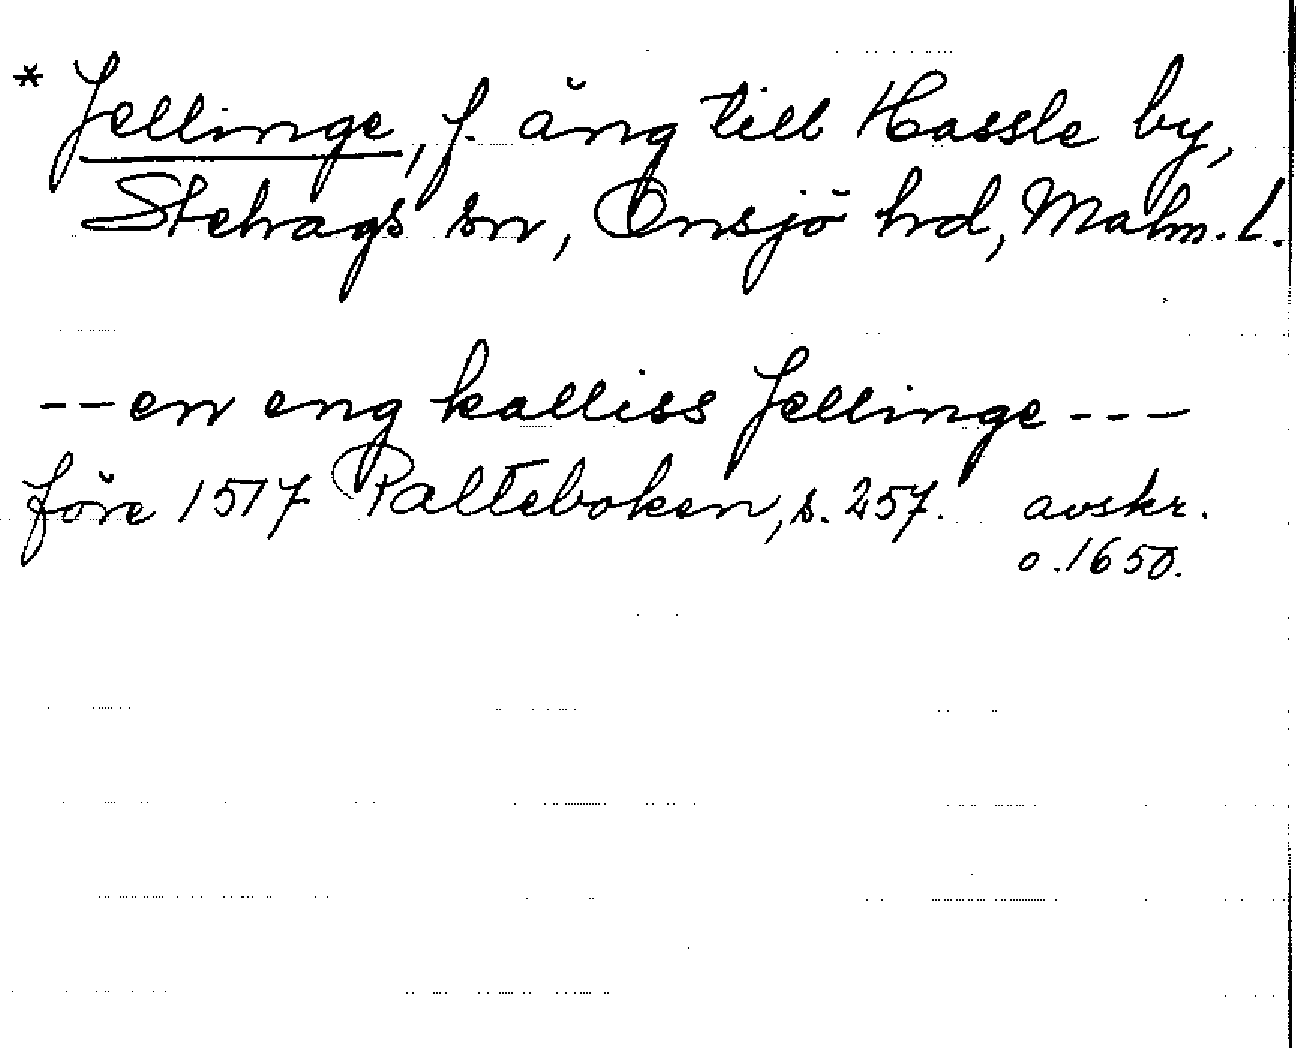 * Jellinge, f. äng till Hassle by,
Stehags sn, Onsjö hrd, Malm. l.
-- en eng kalliss Jellinge ---
före 1517 Palteboken, s. 257. avskr.
o. 1650.